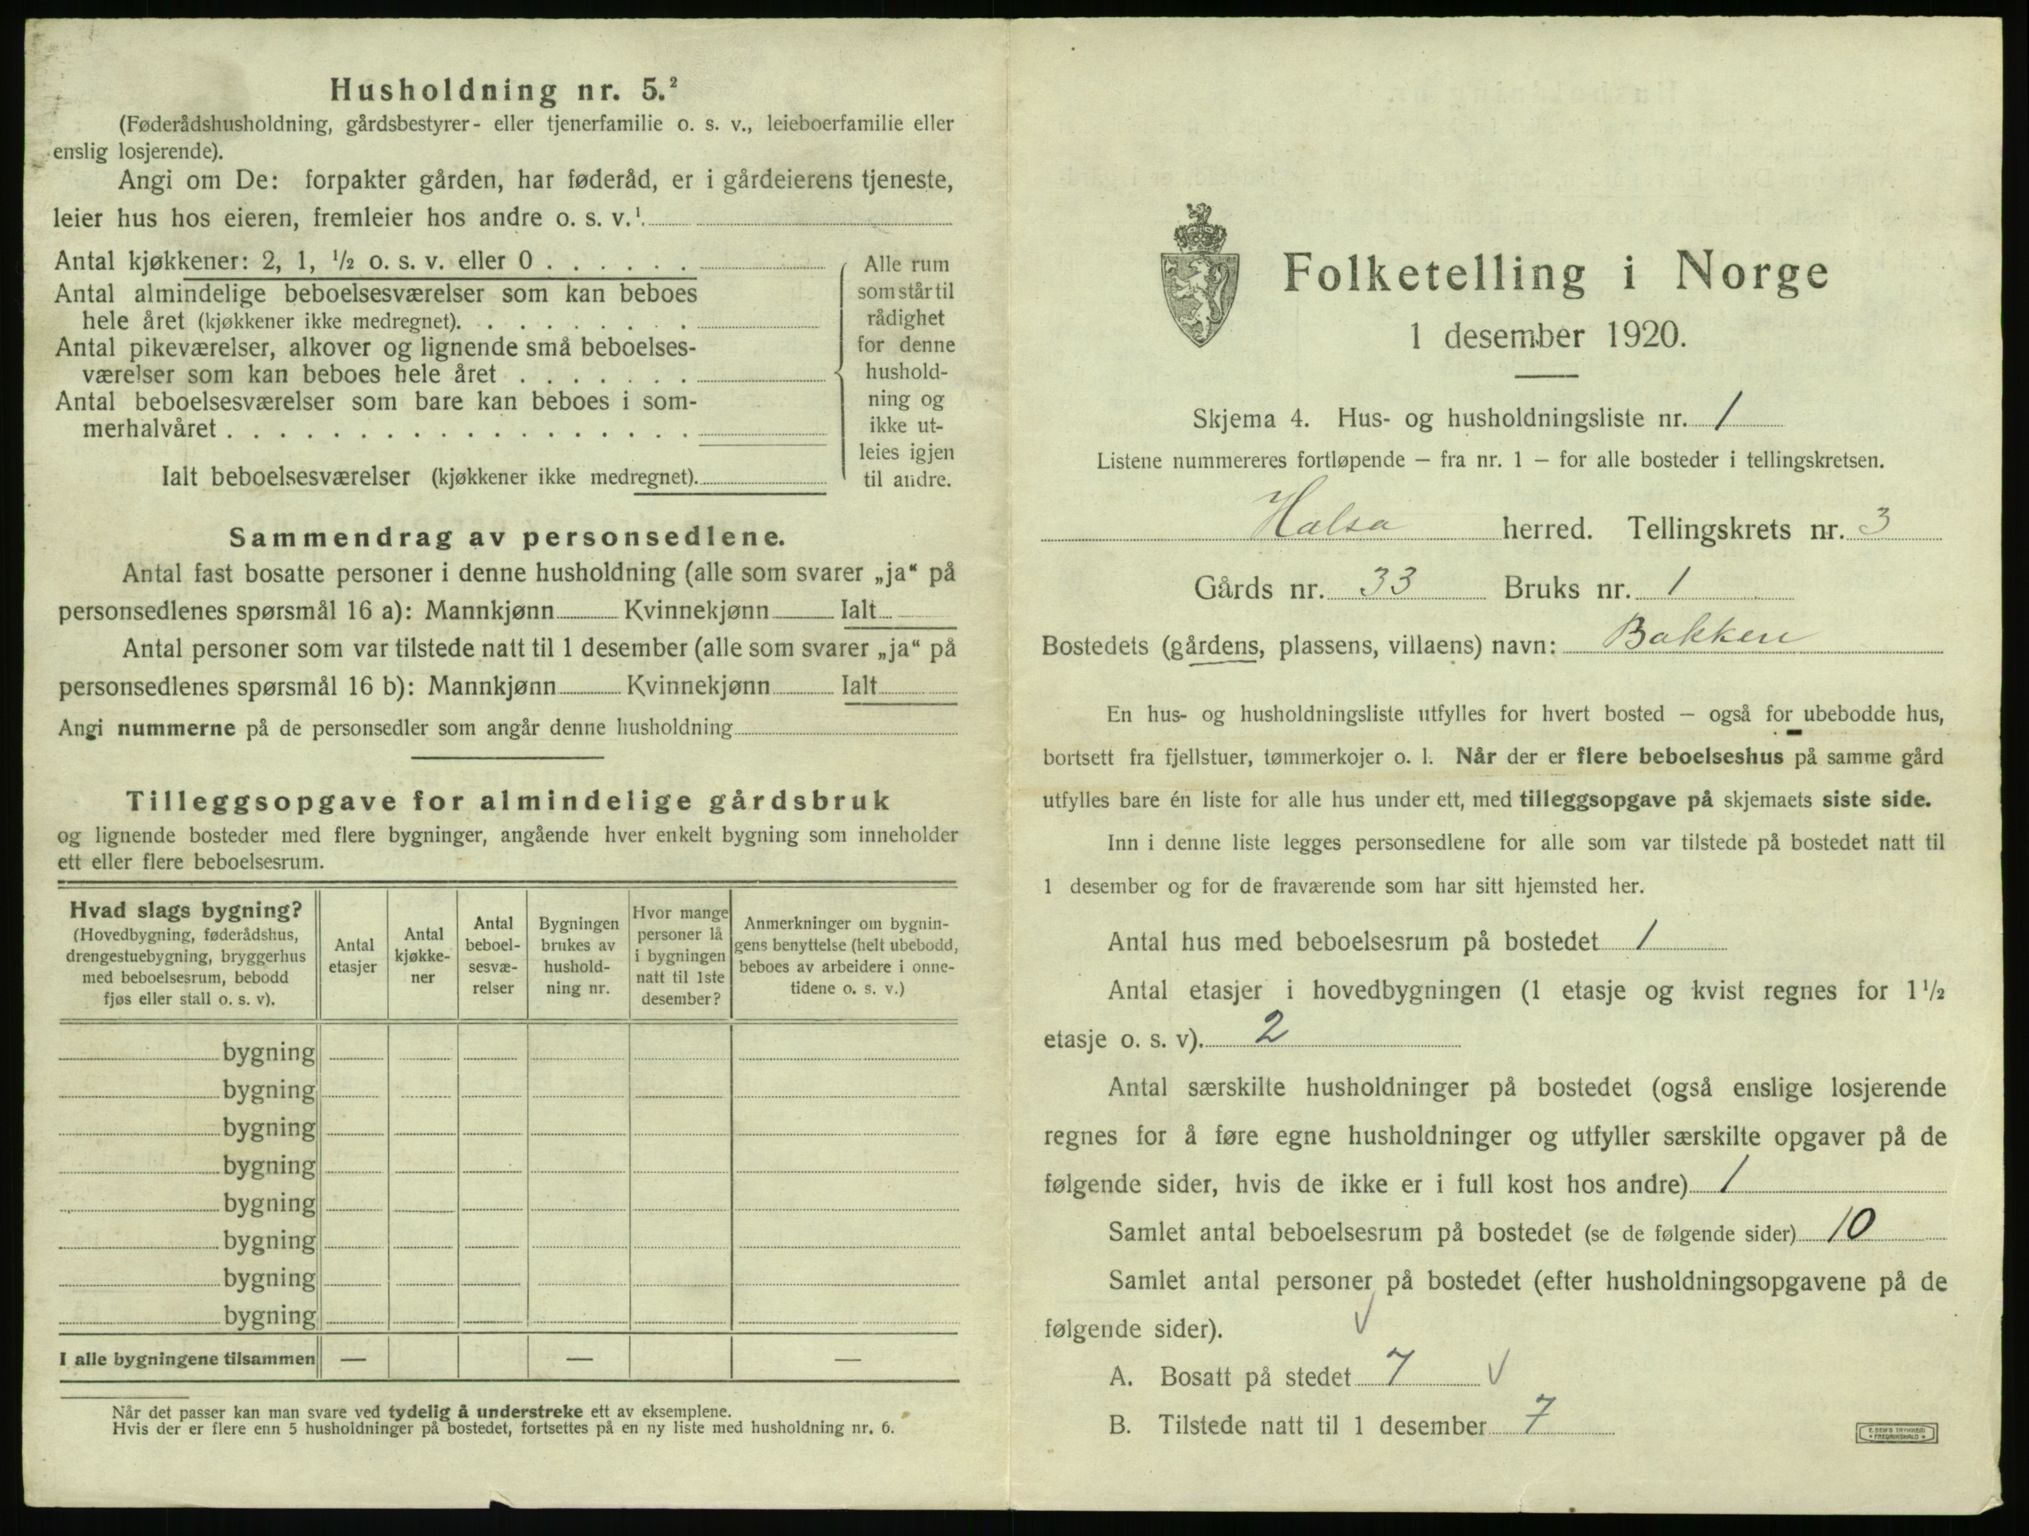 Husholdning nr. 5.²
(Føderådshusholdning, gårdsbestyrer- eller tjenerfamilie o. s. v., leieboerfamilie eller
enslig losjerende).
Angi om De: forpakter gården, har føderåd, er i gårdeierens tjeneste,
leier hus hos eieren, fremleier hos andre o. s. v.¹
Antal kjøkkener: 2, 1, ½ o. s. v. eller 0 . . . . . .
Antal almindelige beboelsesværelser som kan beboes
hele året (kjøkkener ikke medregnet). . . . . . . . .
Antal pikeværelser, alkover og lignende små beboelses-
værelser som kan beboes hele året . . . . . . .
Antal beboelsesværelser som bare kan beboes i som-
merhalvåret . . . . . . . . . . . . . . . . . .
Ialt beboelsesværelser (kjøkkener ikke medregnet).
Alle rum
som står til
rådighet
for denne
hushold-
ning og
ikke ut-
leies igjen
til andre.
Sammendrag av personsedlene.
Antal fast bosatte personer i denne husholdning (alle som svarer „ja“ på
personsedlenes spørsmål 16 a): Mannkjønn Kvinnekjønn Ialt
Antal personer som var tilstede natt til 1 desember (alle som svarer „ja“ på
personsedlenes spørsmål 16 b): Mannkjønn Kvinnekjønn Ialt
Angi nummerne på de personsedler som angår denne husholdning
Tilleggsopgave for almindelige gårdsbruk
og lignende bosteder med flere bygninger, angående hver enkelt bygning som inneholder
ett eller flere beboelsesrum.
Hvad slags bygning?
(Hovedbygning, føderådshus,
drengestuebygning, bryggerhus
med beboelsesrum, bebodd
fjøs eller stall o. s. v).
Antal
etasjer
Antal
kjøkke-
ner
Antal
beboel-
sesvæ-
relser
Bygningen
brukes av
hushold-
ning nr.
Hvor mange
personer lå
i bygningen
natt til 1ste
desember?
Anmerkninger om bygnin-
gens benyttelse (helt ubebodd,
beboes av arbeidere i onne-
tidene o. s. v.)
bygning
bygning
bygning
bygning
bygning
bygning
bygning
bygning
I alle bygningene tilsammen — — —
Når det passer kan man svare ved tydelig å understreke ett av eksemplene.
Hvis der er flere enn 5 husholdninger på bostedet, fortsettes på en ny liste med husholdning nr. 6.
Folketelling i Norge
1 desember 1920.
Skjema 4. Hus- og husholdningsliste nr. 1
Listene nummereres fortløpende – fra nr. 1 – for alle bosteder i tellingskretsen.
Halsa herred. Tellingskrets nr. 3
Gårds nr. 33 Bruks nr. 1
Bostedets (gårdens, plassens, villaens) navn: Bakken
En hus- og husholdningsliste utfylles for hvert bosted – også for ubebodde hus,
bortsett fra fjellstuer, tømmerkojer o. l. Når der er flere beboelseshus på samme gård
utfylles bare én liste for alle hus under ett, med tilleggsopgave på skjemaets siste side.
Inn i denne liste legges personsedlene for alle som var tilstede på bostedet natt til
1 desember og for de fraværende som har sitt hjemsted her.
Antal hus med beboelsesrum på bostedet 1
Antal etasjer i hovedbygningen (1 etasje og kvist regnes for 1½
etasje o. s. v). 2
Antal særskilte husholdninger på bostedet (også enslige losjerende
regnes for å føre egne husholdninger og utfyller særskilte opgaver på de
følgende sider, hvis de ikke er i full kost hos andre) 1
Samlet antal beboelsesrum på bostedet (se de følgende sider) 10
Samlet antal personer på bostedet (efter husholdningsopgavene på de
følgende sider).
A. Bosatt på stedet 7
B. Tilstede natt til 1 desember 7